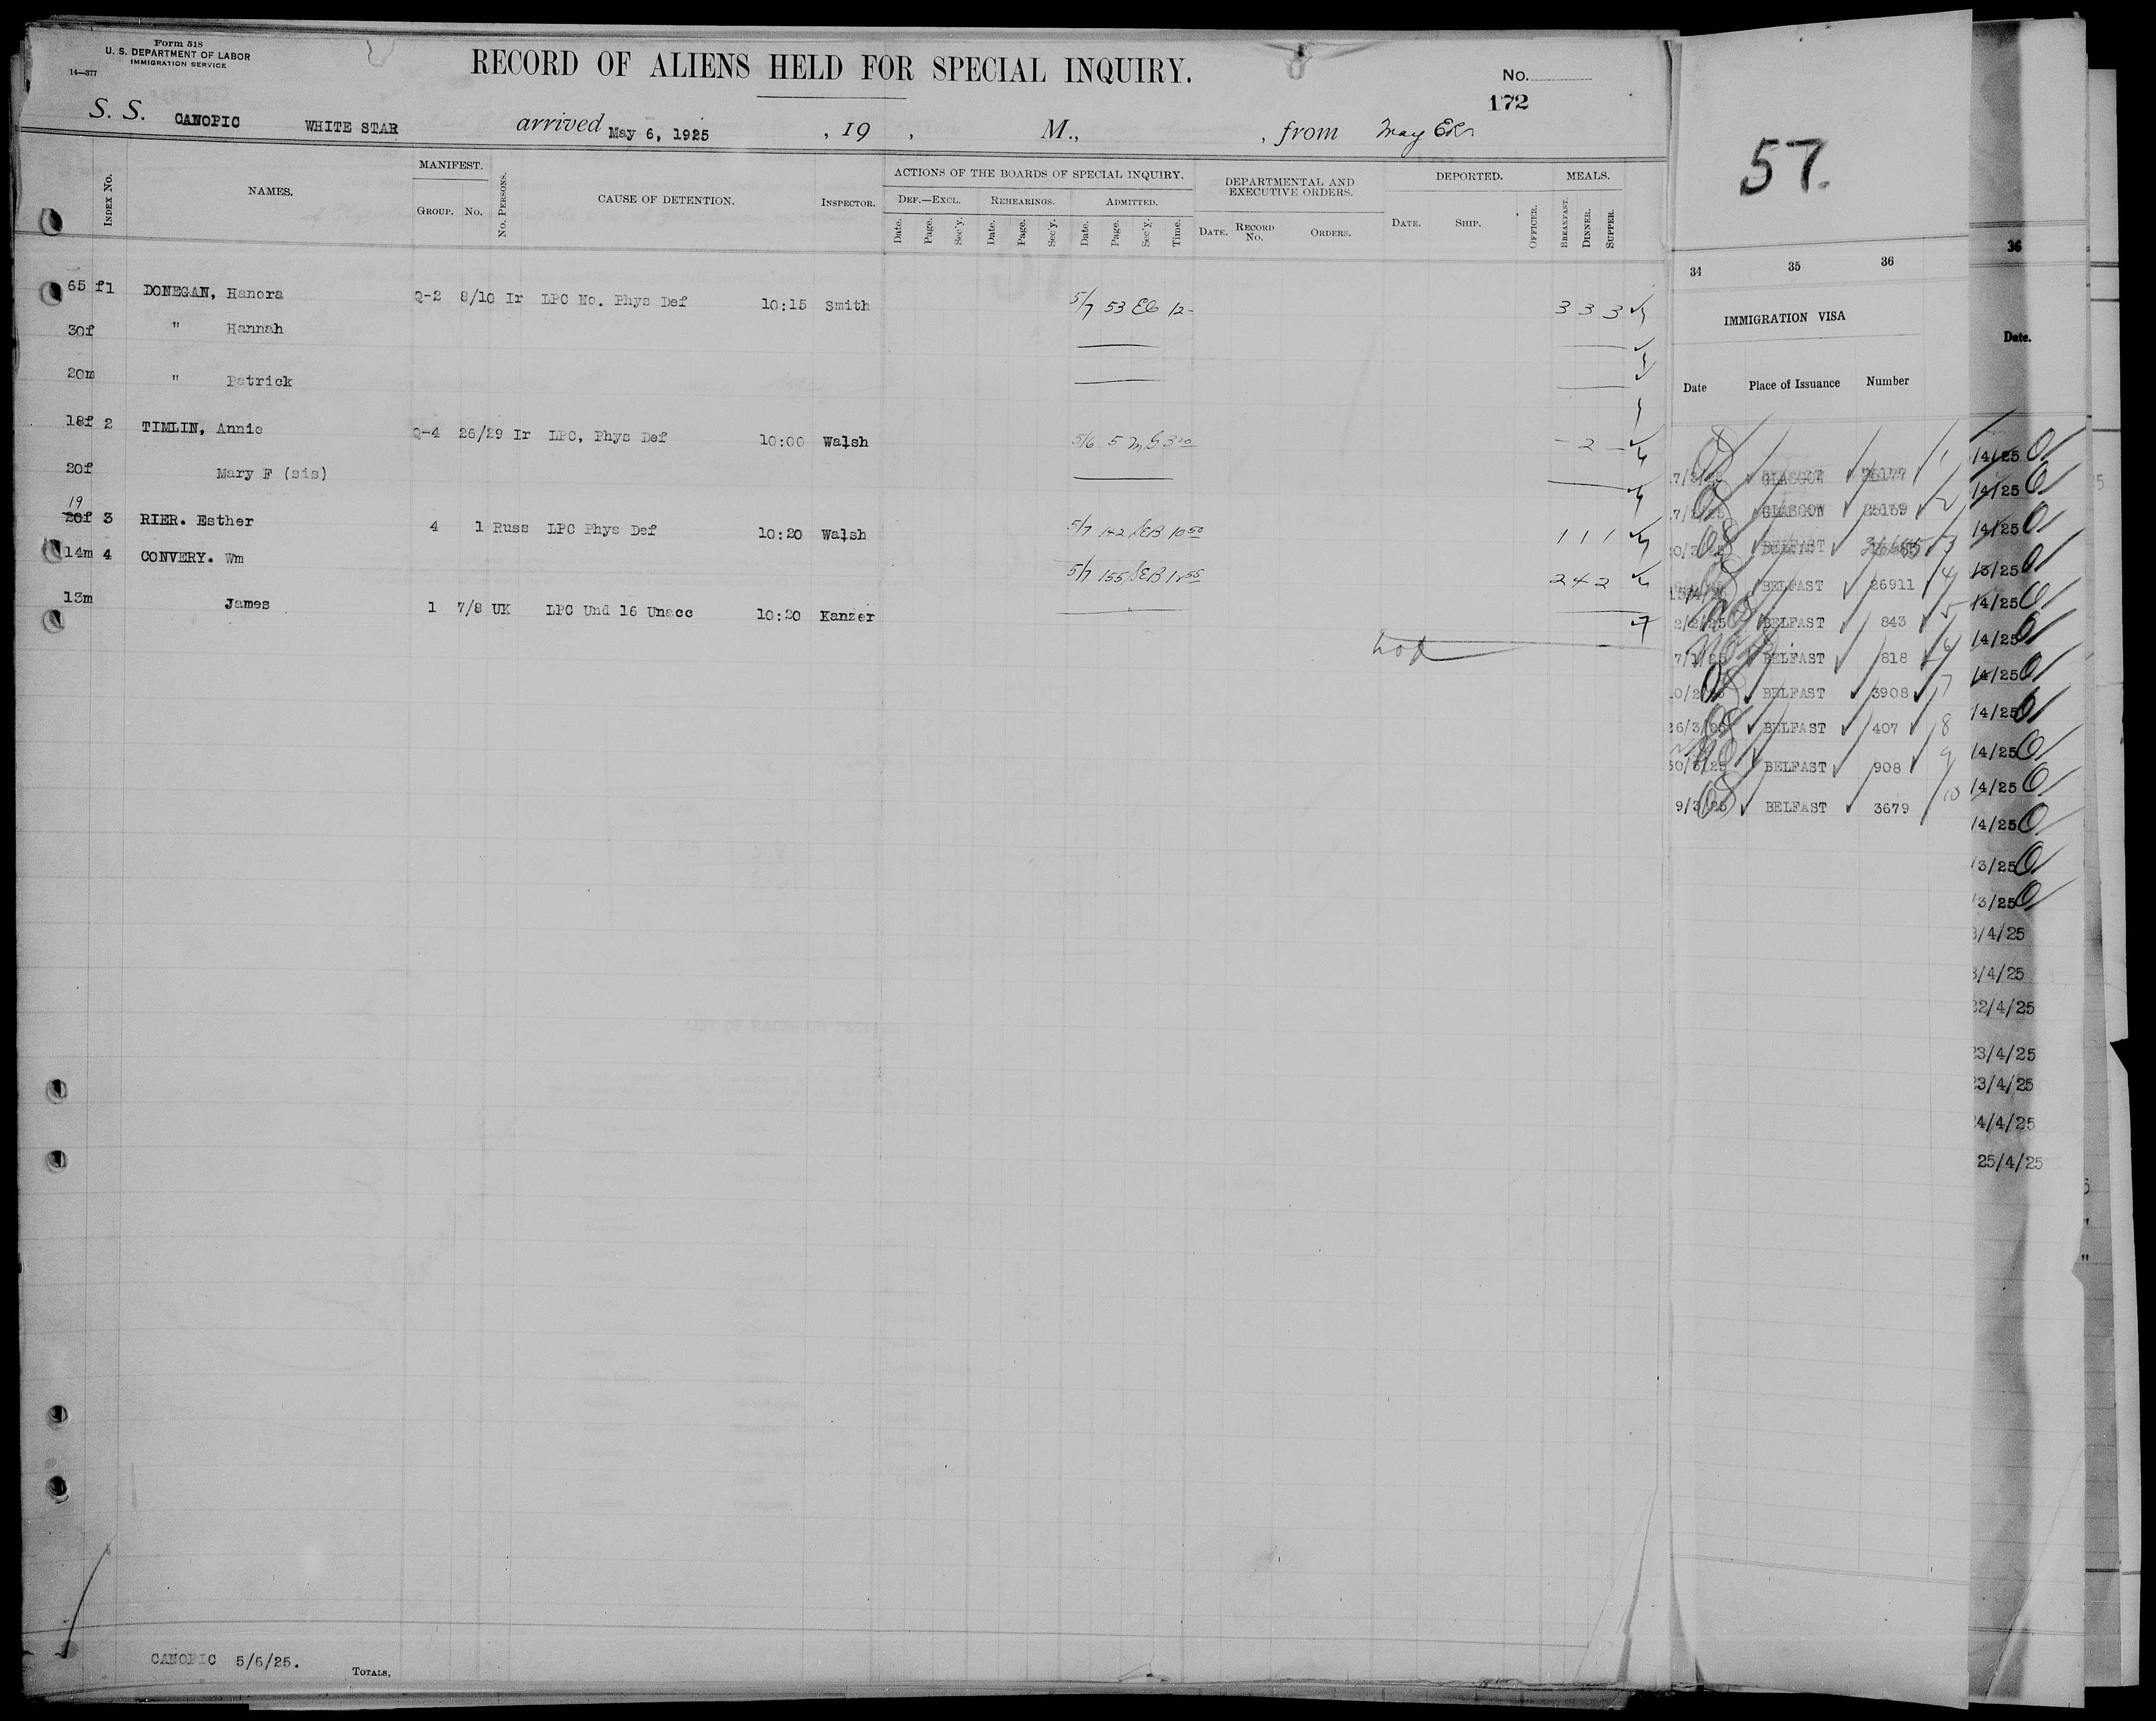 Form 518
U. S. DEPARTMENT OF LABOR
IMMIGRATION SERVICE
14—377
RECORD OF ALIENS HELD FOR SPECIAL INQUIRY.
No.
172
S. S. CANOPIC WHITE STAR arrived May 6, 1925 , 19 , M., , from
INDEX No. NAMES. MANIFEST. GROUP. No. No. PERSONS. CAUSE OF DETENTION. INSPECTOR. ACTIONS OF THE BOARDS OF SPECIAL INQUIRY. DEPARTMENTAL AND EXECUTIVE ORDERS. DEPORTED. MEALS.
DEF.—EXCL. REHEARINGS. ADMITTED.
Date. Page. Sec'y. Date. Page. Sec'y. Date. Page. Sec'y. Time. DATE. RECORD No. ORDERS. DATE. SHIP. OFFICER. BREAKFAST. DINNER. SUPPER.
65 f1 DONEGAN, Hanora Q-2 8/10 Ir LPC No. Phys Def 10:15 Smith 5/7 53 12- 3 3 3
30f " Hannah
20m " Patrick
18f 2 TIMLIN, Annie Q-4 26/29 Ir LPC, Phys Def 10:00 Walsh 5/6 5 - 2 -
20f Mary F (sis)
19
20f 3 RIER. Esther 4 1 Russ LPC Phys Def 10:20 Walsh 5/7 142 10 50 1 1 1
14m 4 CONVERY. Wm 5/7 155 2 4 2
13m James 1 7/8 UK LPC Und 16 Unacc 10:20 Kanzer
CANOPIC 5/6/25. TOTALS,
57.
34 35 36
IMMIGRATION VISA
Date Place of Issuance Number
GLASGOW 1
GLASGOW 2
BELFAST 3
BELFAST 26911 4
BELFAST 843 5
BELFAST 818 6
BELFAST 3908 7
26/3/25 BELFAST 407 8
BELFAST 908 9
9/3/25 BELFAST 3679 10
36
Date.
/4/25
/4/25
/4/25
/3/25
/4/25
/4/25
/4/25
/4/25
/4/25
/4/25
/4/25
/3/25
/3/25
3/4/25
3/4/25
22/4/25
23/4/25
23/4/25
24/4/25
25/4/25